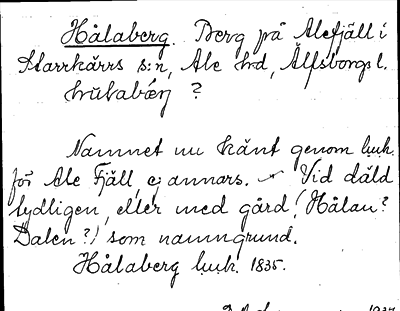 Hålaberg. Berg på Alefjäll i
Starrkärrs s:n, Ale hd, Älfsborgs l.
?
Namnet nu känt genom ljuk.
för Ale Fjäll, ej annars. Vid däld
tydligen, eller med gård (Hålan?
Dalen?) som namngrund.
Hålaberg ljuk. 1835.